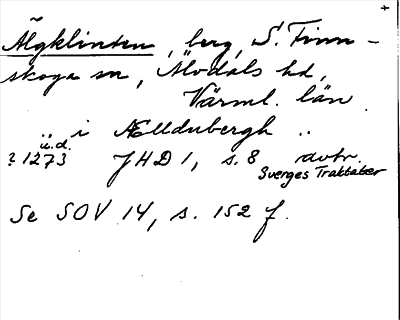 +
Älgklinten, berg, S. Finn-
skoga sn, Älvdals hd,
Värml. län.
.. i Ælldubergh ..
u.d.
? 1273 JHD 1, s. 8 avtr.
Sverges Traktater
Se SOV 14, s. 152 f.